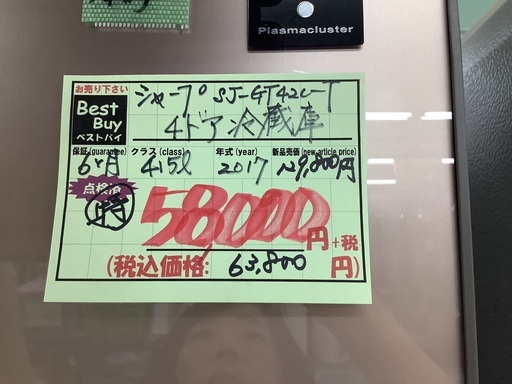 Plasmacluster
お売り下さい
シャープ SJ-GT42C-T
Best Buy
ベストバイ
4ドア冷蔵庫
保証(guarantee) クラス(class) 年式(year) 新品売価(new article price)
6ヶ月 415ℓ 2017 129,800円
点検済
特
58000円+税
(税込価格: 63,800円)